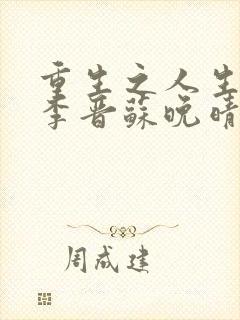 重生之人生
李晋蘇晚晴
周成建